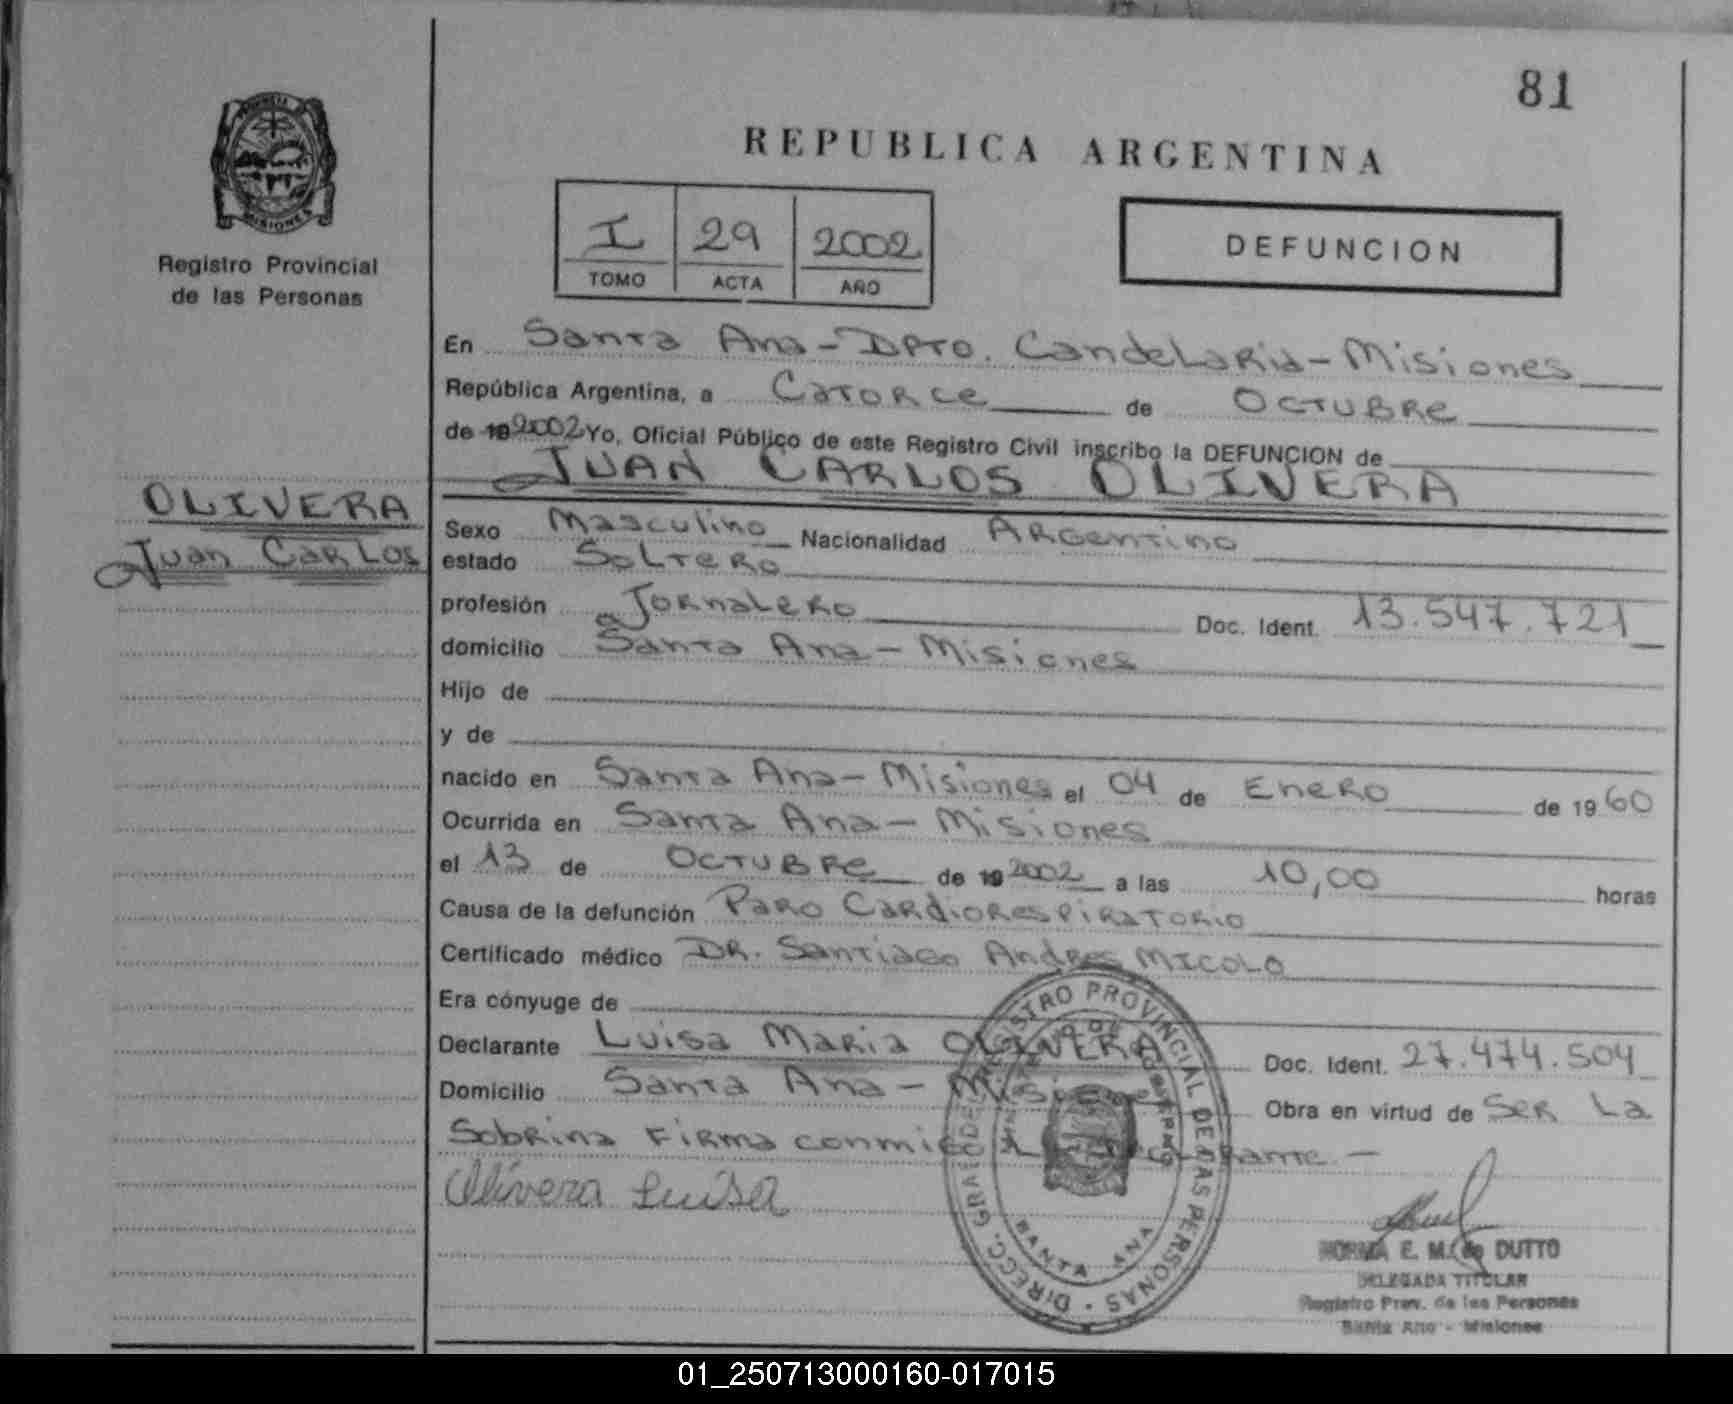 81
REPUBLICA ARGENTINA
MISIONES
Registro Provincial
de las Personas
I 29 2002
TOMO ACTA AÑO
DEFUNCION
En Santa Ana - Dpto. Candelaria - Misiones
República Argentina, a Catorce de Octubre
de 19 2002 Yo, Oficial Público de este Registro Civil inscribo la DEFUNCION de
JUAN CARLOS OLIVERA
OLIVERA
Juan Carlos
Sexo Masculino Nacionalidad Argentino
estado Soltero
profesión Jornalero Doc. Ident. 13.547.721
domicilio Santa Ana - Misiones
Hijo de
y de
nacido en Santa Ana - Misiones el 04 de Enero de 1960
Ocurrida en Santa Ana - Misiones
el 13 de Octubre de 19 2002 a las 10,00 horas
Causa de la defunción Paro Cardiorespiratorio
Certificado médico DR. Santiago Andres MICOLO
Era cónyuge de
Declarante Luisa Maria OLIVERA Doc. Ident. 27.474.504
Domicilio Santa Ana - Misiones Obra en virtud de Ser La
Sobrina Firma conmigo
Olivera Luisa
REGISTRO PROVINCIAL DE LAS PERSONAS
SANTA ANA
NORMA E. M. de DUTTO
DELEGADA TITULAR
Registro Prov. de las Personas
Santa Ana - Misiones
01_250713000160-017015